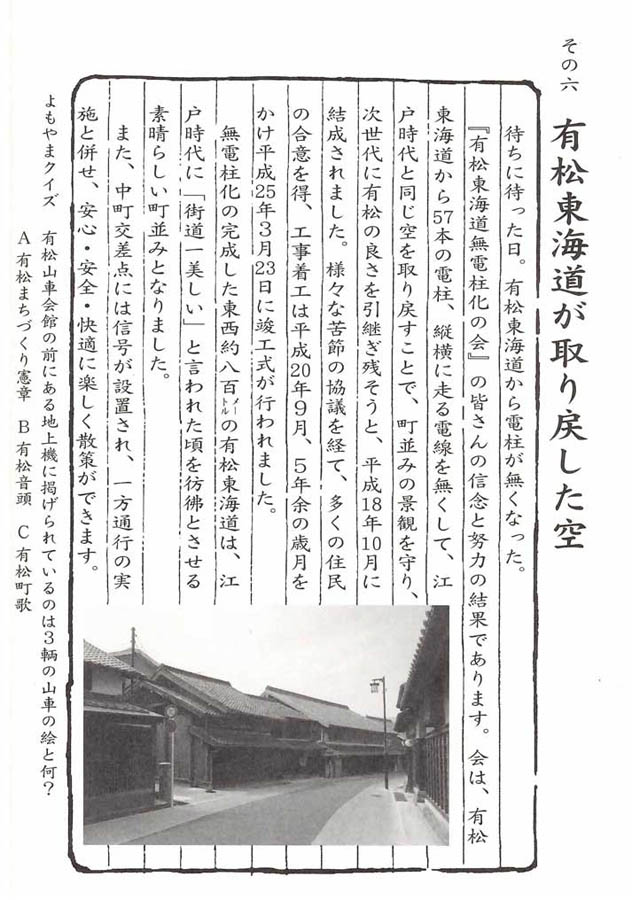 その六
有松東海道が取り戻した空
待ちに待った日。有松東海道から電柱が無くなった。
『有松東海道無電柱化の会』の皆さんの信念と努力の結果であります。会は、有松
東海道から57本の電柱、縦横に走る電線を無くして、江
戸時代と同じ空を取り戻すことで、町並みの景観を守り、
次世代に有松の良さを引継ぎ残そうと、平成18年10月に
結成されました。様々な苦節の協議を経て、多くの住民
の合意を得、工事着工は平成20年9月、5年余の歳月を
かけ平成25年3月23日に竣工式が行われました。
無電柱化の完成した東西約八百メートルの有松東海道は、江
戸時代に「街道一美しい」と言われた頃を彷彿とさせる
素晴らしい町並みとなりました。
また、中町交差点には信号が設置され、一方通行の実
施と併せ、安心・安全・快適に楽しく散策ができます。
よもやまクイズ 有松山車会館の前にある地上機に掲げられているのは3輌の山車の絵と何?
A 有松まちづくり憲章 B 有松音頭 C 有松町歌